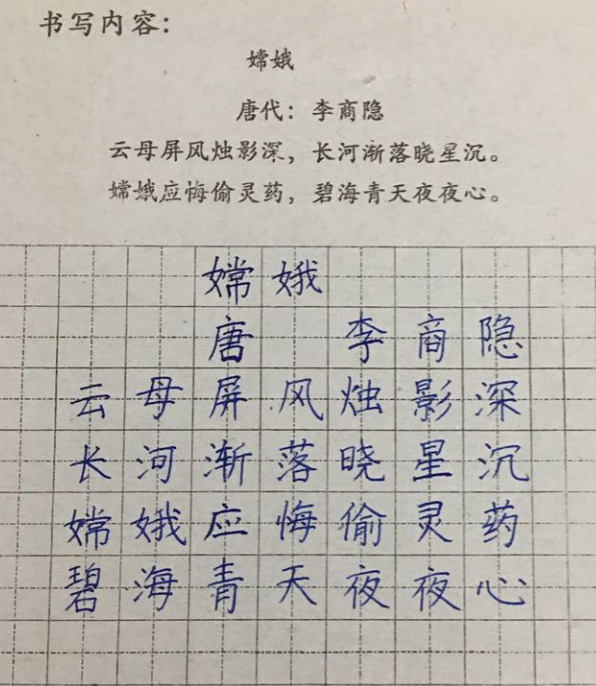 书写内容：
嫦娥
唐代：李商隐
云母屏风烛影深，长河渐落晓星沉。
嫦娥应悔偷灵药，碧海青天夜夜心。
嫦娥
唐 李商隐
云母屏风烛影深
长河渐落晓星沉
嫦娥应悔偷灵药
碧海青天夜夜心